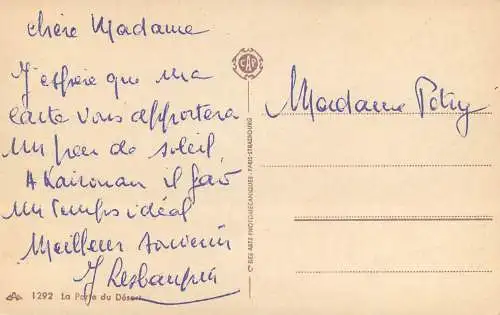 chère Madame
J'espère que ma
carte vous apportera
un peu de soleil
A Kairouan il fait
un temps idéal
Meilleur souvenir
J
CAP
Madame
Cie DES ARTS PHOTOMÉCANIQUES - PARIS-STRASBOURG
CAP 1292 La Porte du Désert